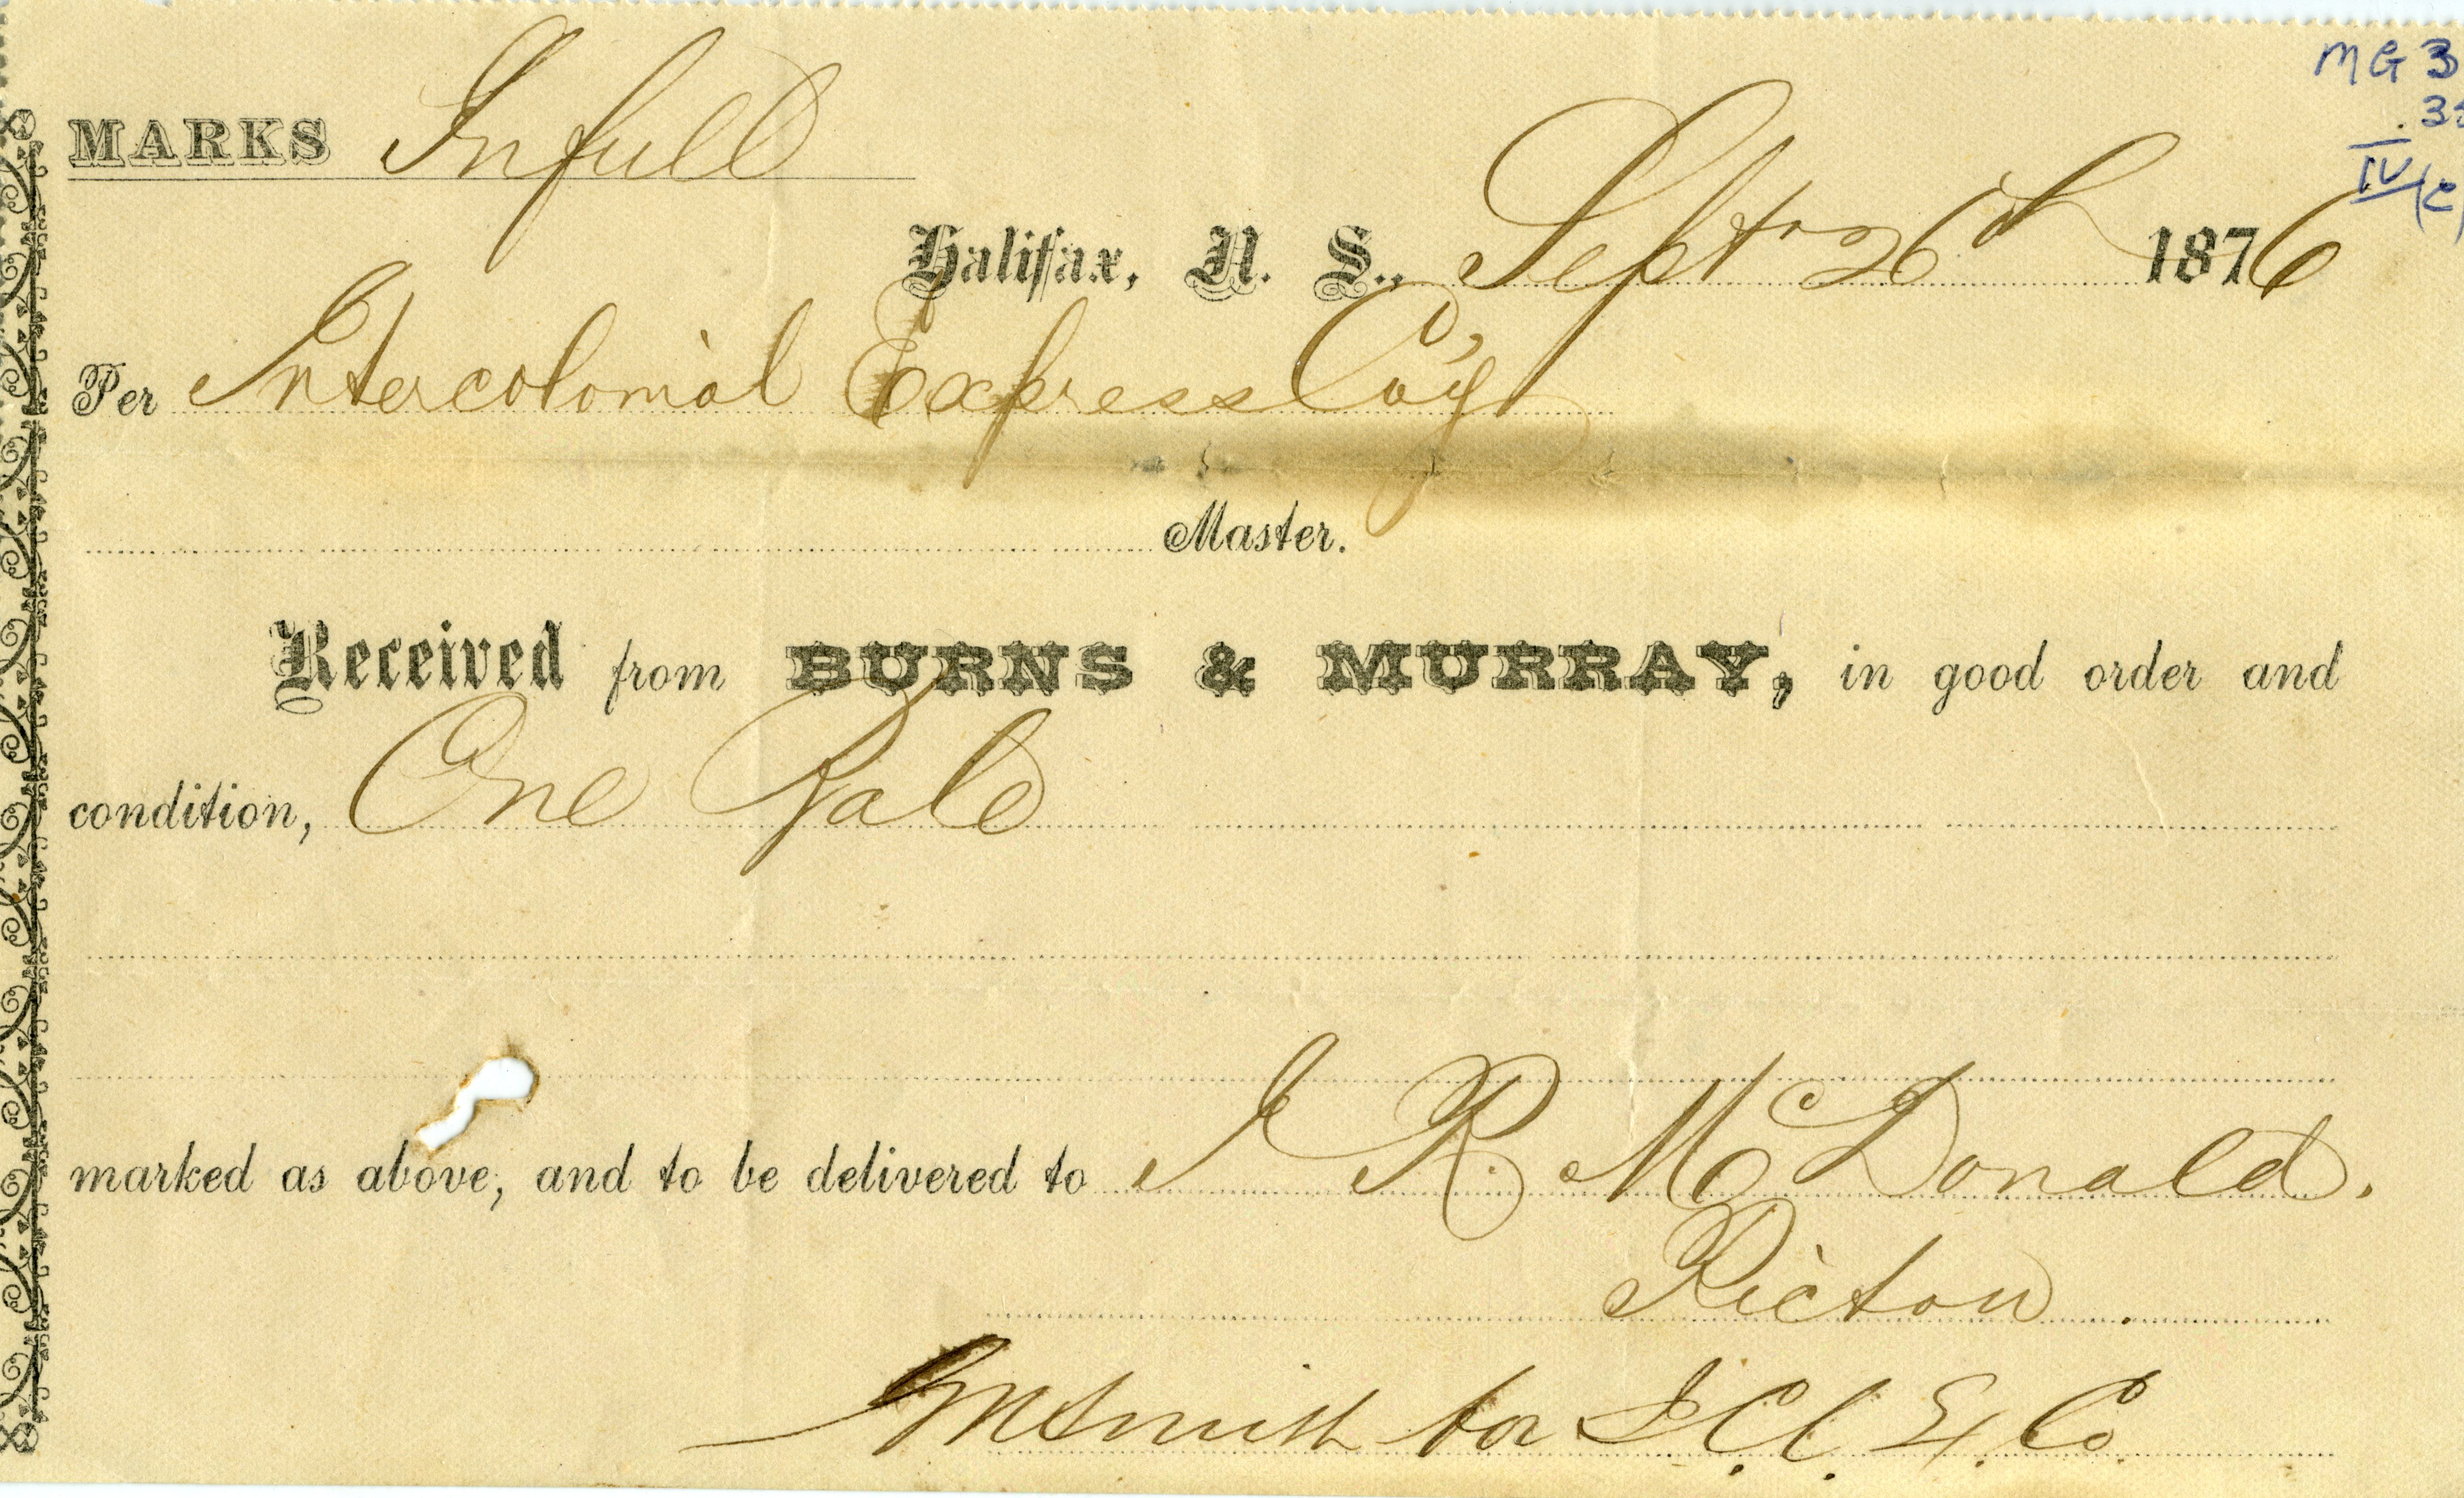 MG 3
.3
IV(c)
MARKS In full
Halifax, N. S., Sept 26th 1876
Per Intercolonial Express Coy
Master.
Received from BURNS & MURRAY, in good order and
condition, One Bale
marked as above, and to be delivered to J R. McDonald.
Pictou.
Smith for I.C. E. Co